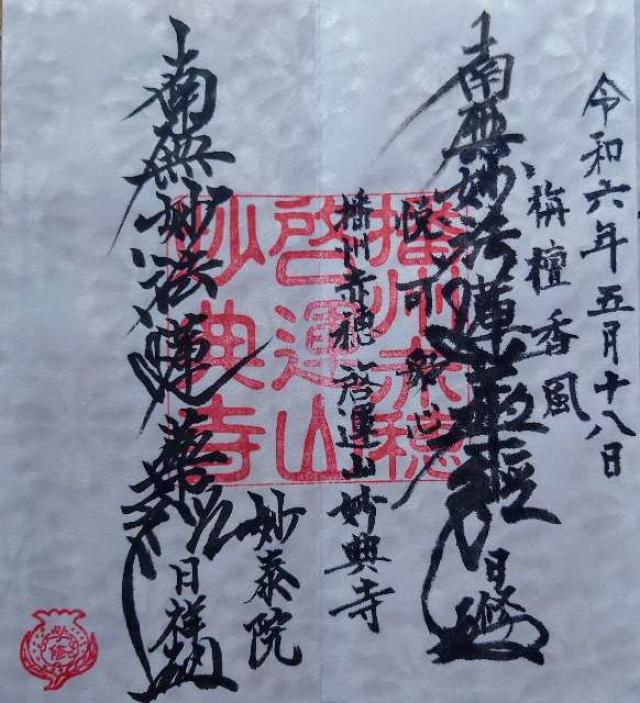 令和六年五月十八日
栴檀香風
南無妙法蓮華経
日修
悦可衆心
播州赤穂 啓運山 妙典寺
妙泰院
南無妙法蓮華経
日祥
播州赤穂
啓運山
妙典寺